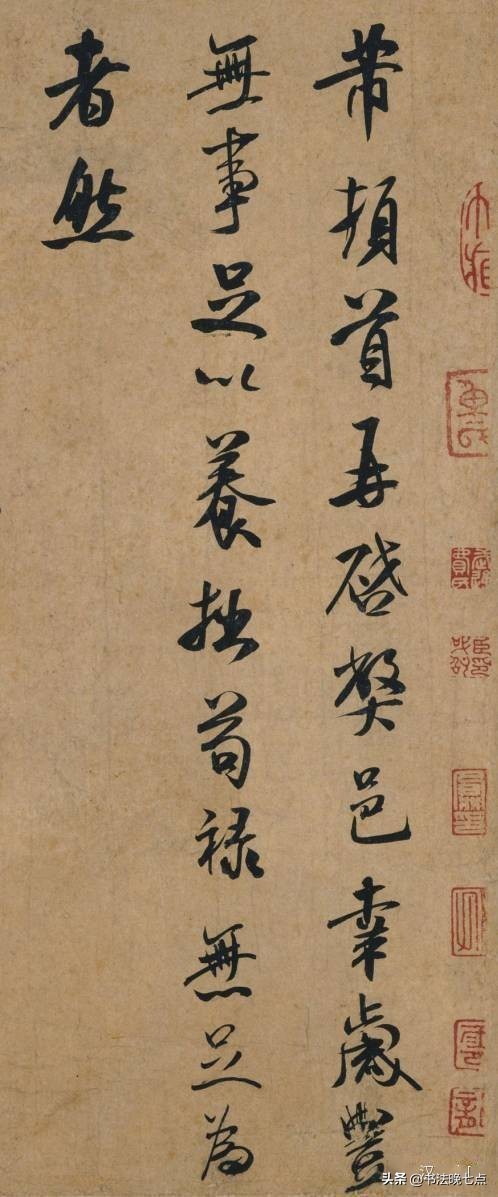 芾頓首再啓弊邑幸歲豐
無事足以養拙苟禄無足為
者然
头条 @书法晚七点